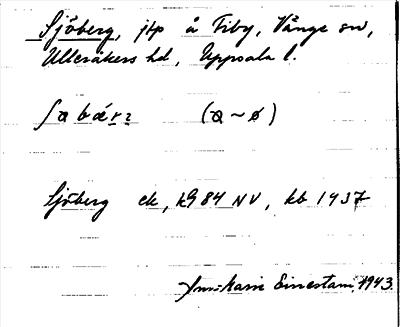 Sjöberg, jtp å Fiby, Vänge sn,
Ulleråkers hd, Uppsala l.
Sjöberg ek, kg 84 NV, kb 1437
Ann-Marie Einestam, 1943